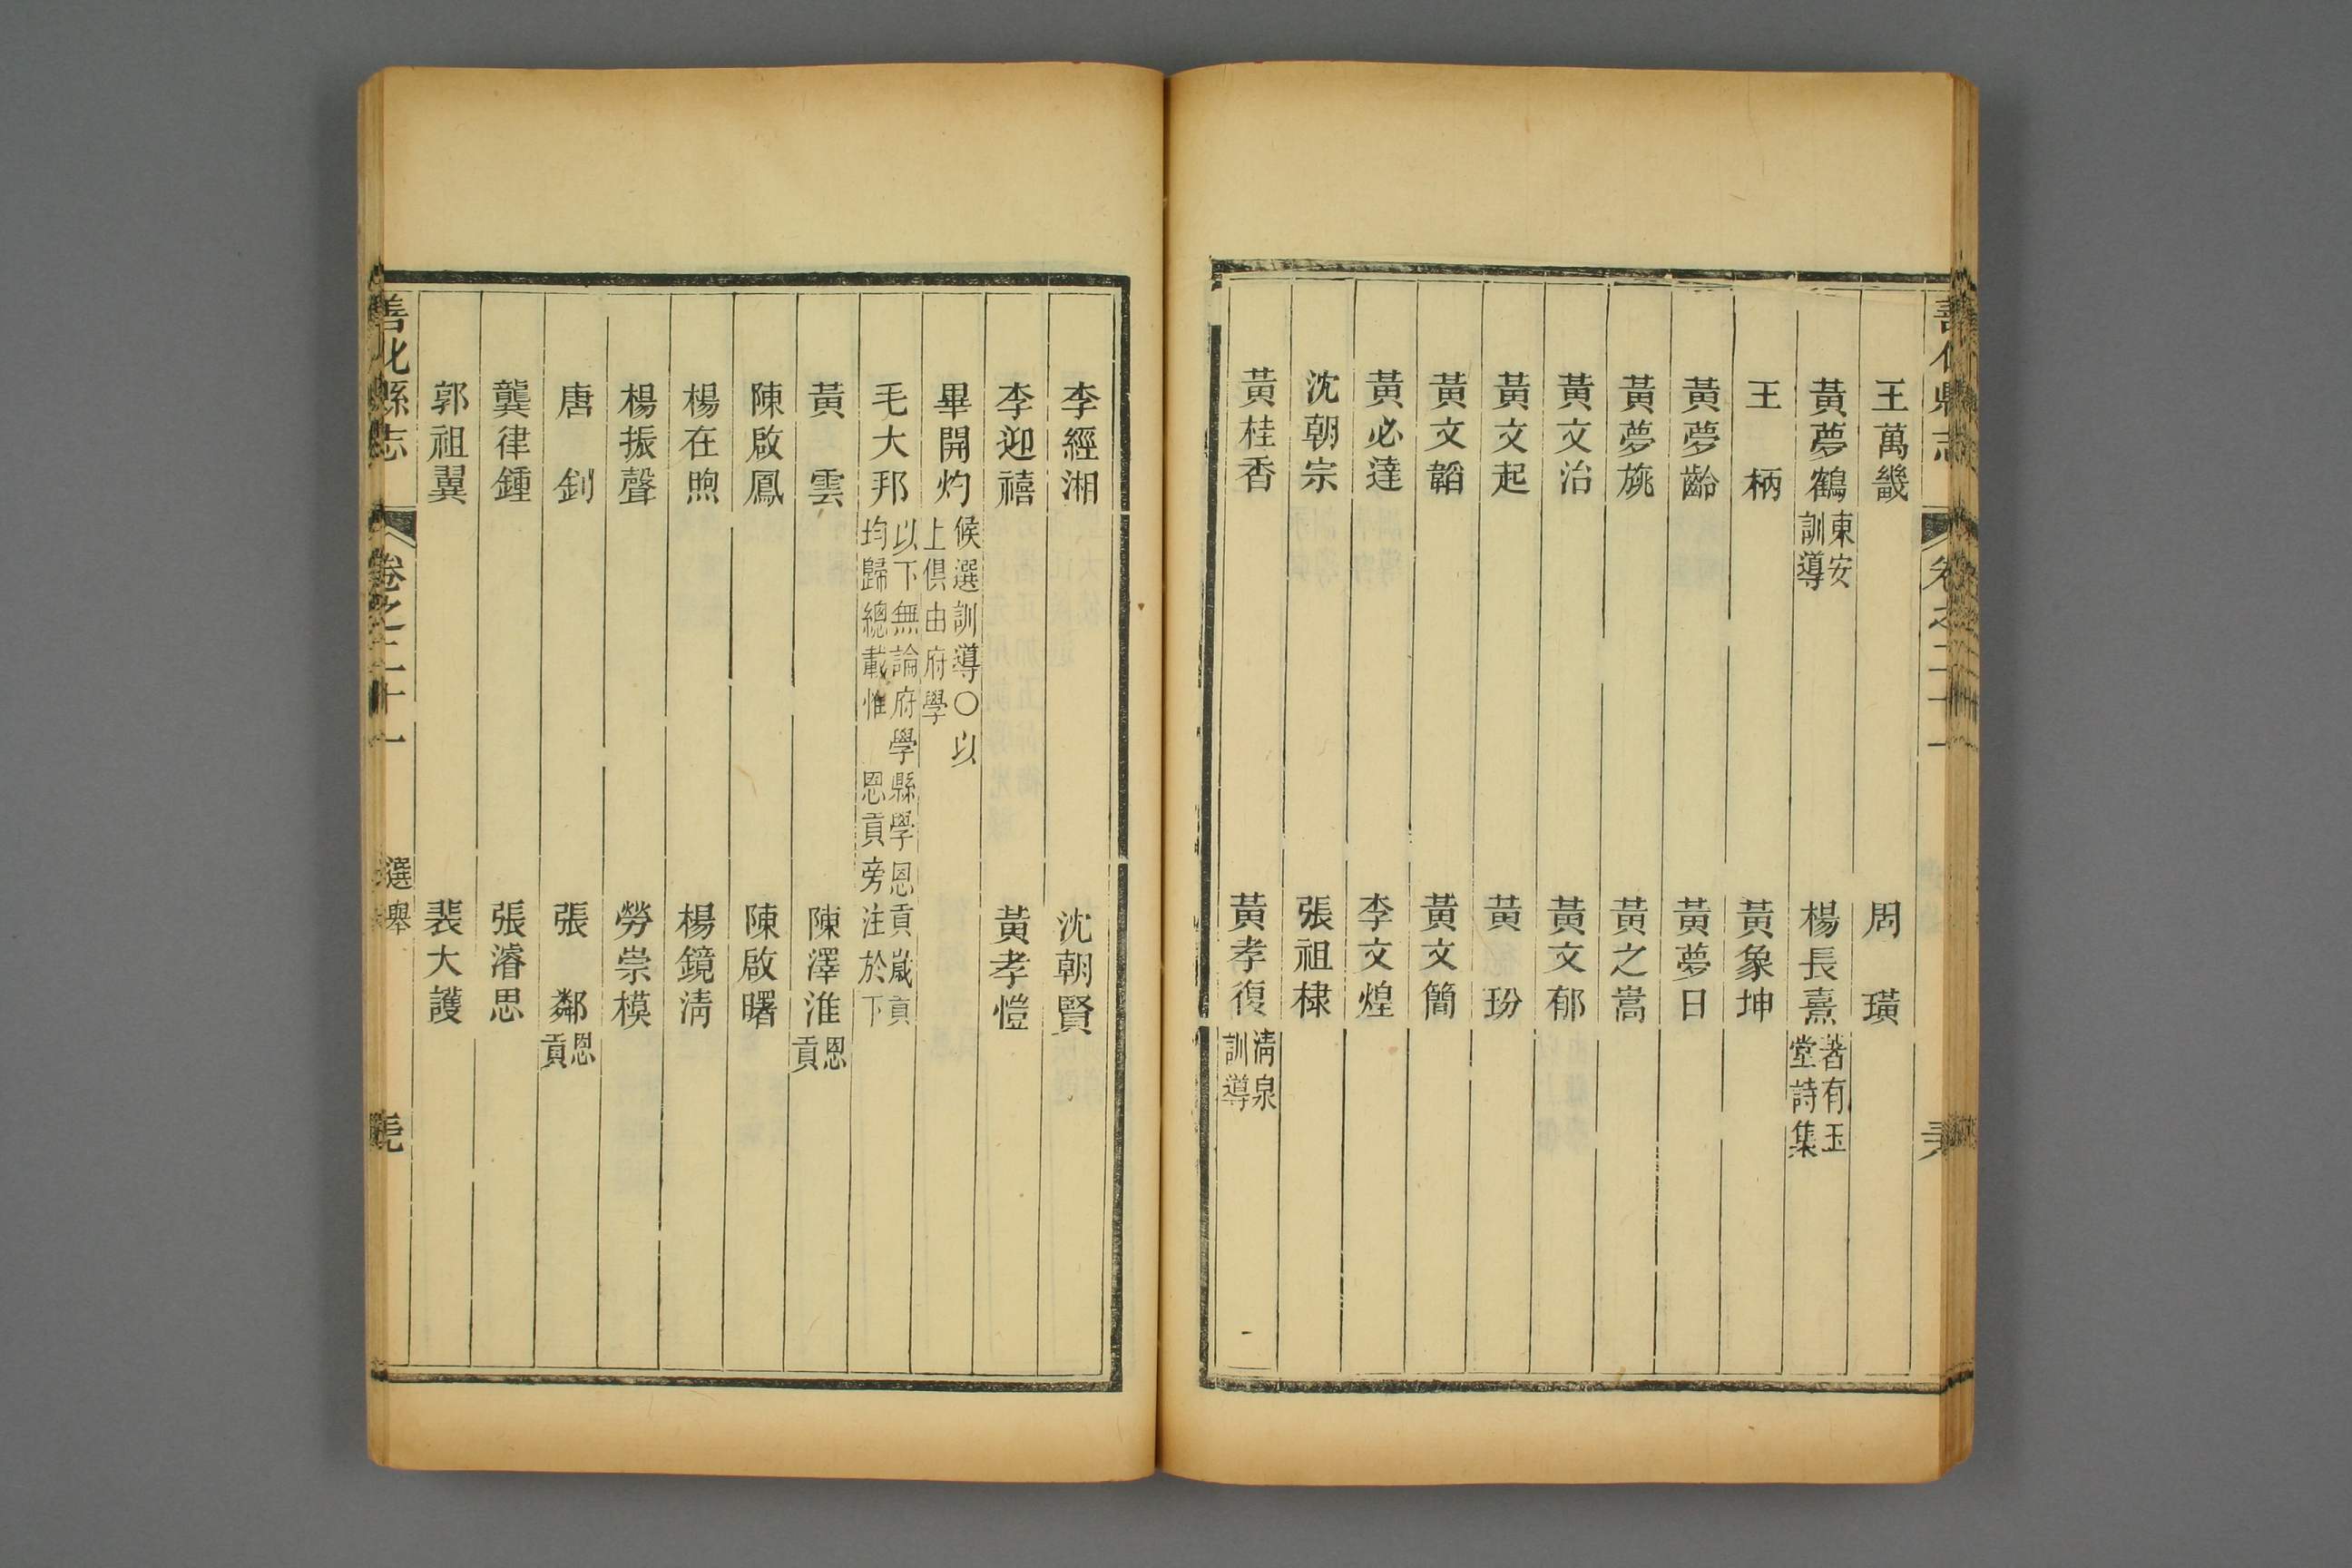 善化縣志 卷之二十一
王萬畿 周 璜
黃夢鶴 東安訓導 楊長熹 著有玉堂詩集
王 柄 黃象坤
黃夢齡 黃夢日
黃夢旐 黃之嵩
黃文治 黃文郁
黃文起 黃 玢
黃文韜 黃文簡
黃必達 李文煌
沈朝宗 張祖棣
黃桂香 黃孝復 淸泉訓導
李經湘 沈朝賢
李迎禧 黃孝愷
畢開灼 候選訓導○以上俱由府學
毛大邦 以下無論府學縣學恩貢歲貢均歸總載惟 恩貢旁注於下
黃 雲 陳澤淮 恩貢
陳啟鳳 陳啟曙
楊在煦 楊鏡淸
楊振聲 勞崇模
唐 釗 張 鄰 恩貢
龔律鍾 張濬思
郭祖翼 裴大護
善化縣志 卷之二十一 選舉